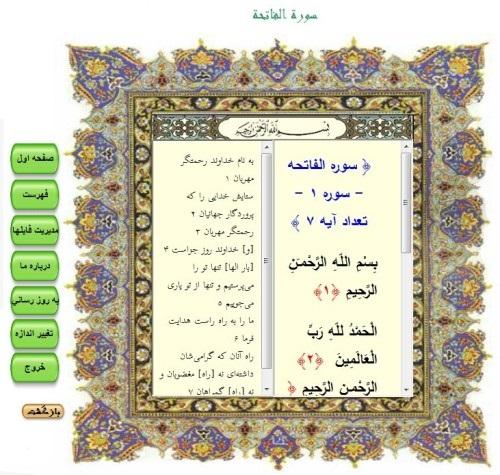 سورة الفاتحة
بسم الله الرحمن الرحیم
﴿ سوره الفاتحه
- سوره ۱ -
تعداد آیه ۷ ﴾
بِسْمِ اللَّهِ الرَّحْمَنِ
الرَّحِيمِ ﴿۱﴾
الْحَمْدُ للّهِ رَبِّ
الْعَالَمِينَ ﴿۲﴾
الرَّحْمنِ الرَّحِيمِ ﴿
به نام خداوند رحمتگر
مهربان ۱
ستایش خدایی را که
پروردگار جهانیان ۲
رحمتگر مهربان ۳
[و] خداوند روز جزاست ۴
[بار الها] تنها تو را
می‌پرستیم و تنها از تو یاری
می‌جوییم ۵
ما را به راه راست هدایت
فرما ۶
راه آنان که گرامی‌شان
داشته‌ای نه [راه] مغضوبان و
نه [راه] گمراهان ۷
صفحه اول
فهرست
مدیریت فایلها
درباره ما
به روز رسانی
تغییر اندازه
خروج
بازگشت